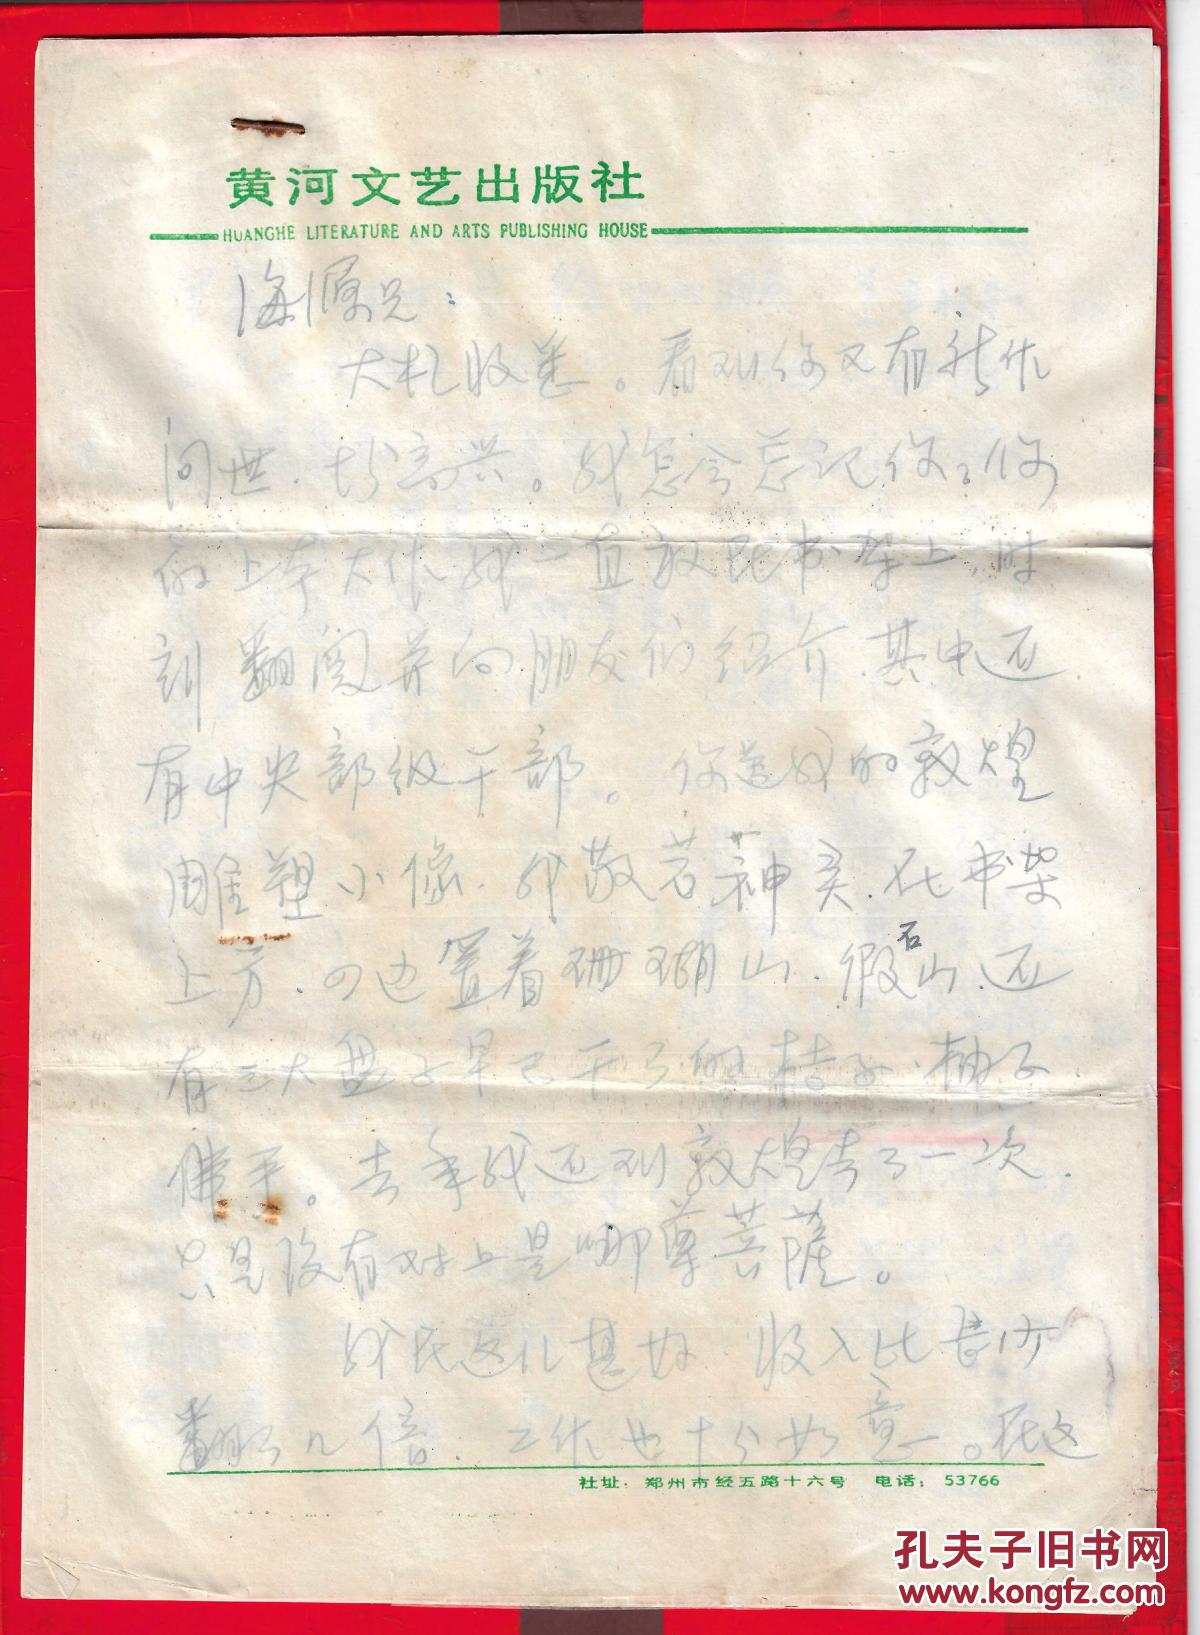 黄河文艺出版社
HUANGHE LITERATURE AND ARTS PUBLISHING HOUSE
海源兄：
大札收悉。看到你又有新作
问世，十分高兴。我怎会忘记你？你
的上本大作我一直放在书架上，时
刻翻阅并向朋友们绍介，其中还
有中央部级干部。你送我的敦煌
雕塑小像，我敬若神灵，在书架
上方，四边置着珊瑚山，假石山，还
有三大盘子早已干了的桔子，柚子，
佛手。去年我还到敦煌去了一次，
只是没有对上是哪尊菩萨。
我在这儿甚好，收入比长沙
翻了几倍，工作也十分如意。在这
社址：郑州市经五路十六号 电话：53766
孔夫子旧书网
www.kongfz.com